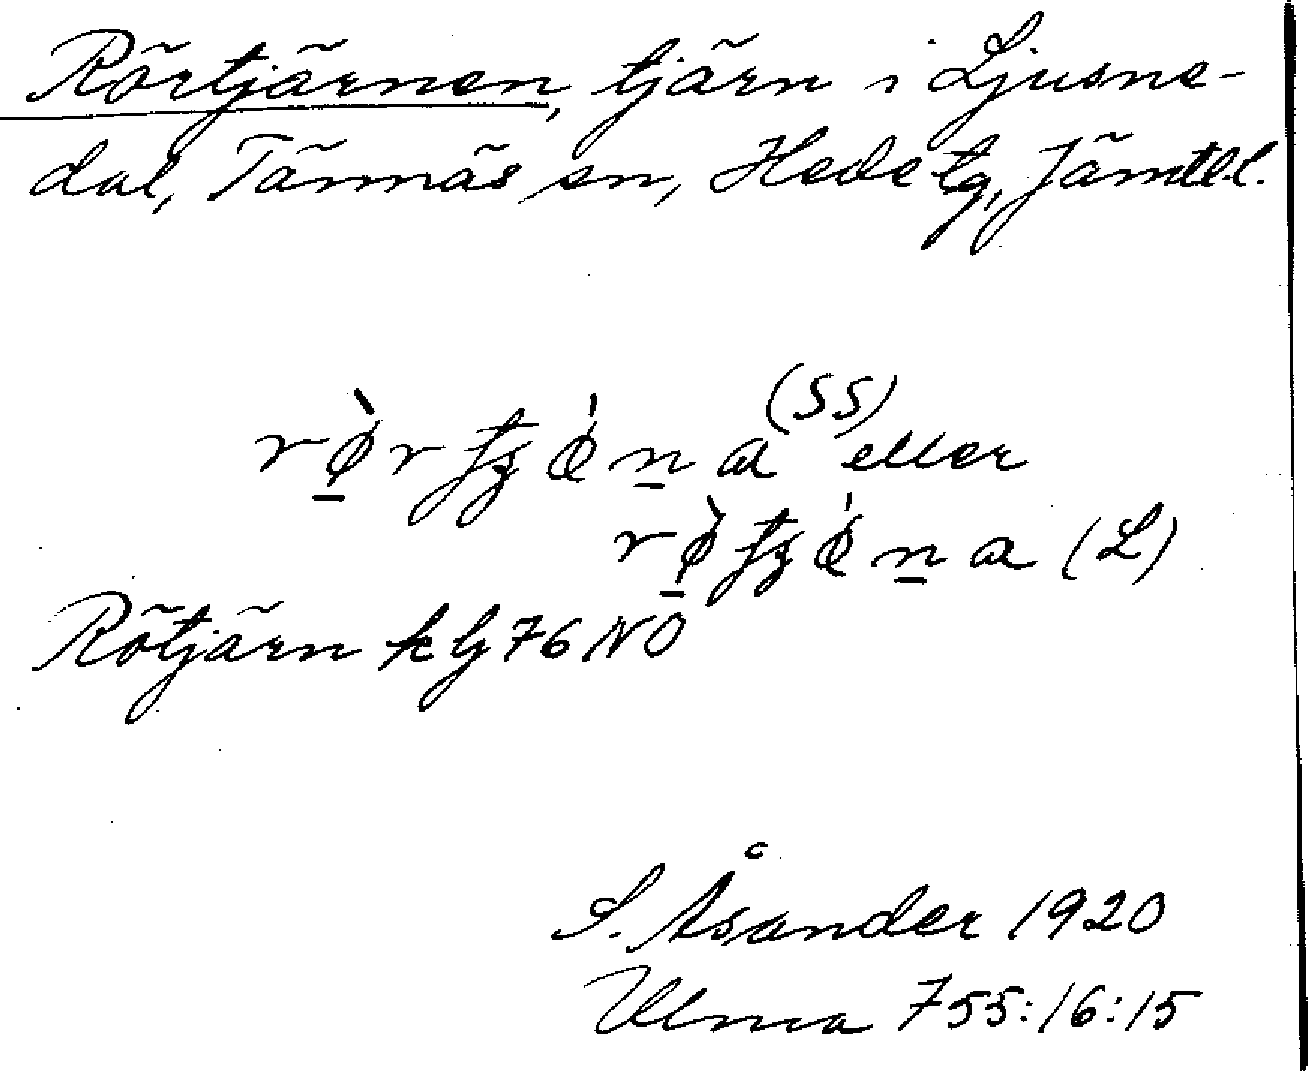 Rörtjärnen, tjärn i Ljusne-
dal, Tännäs sn, Hede tg, Jämtl.l.
(SS) eller
(L)
Rötjärn k Lj 76 NO
S. Åsander 1920
Ulma 755:16:15